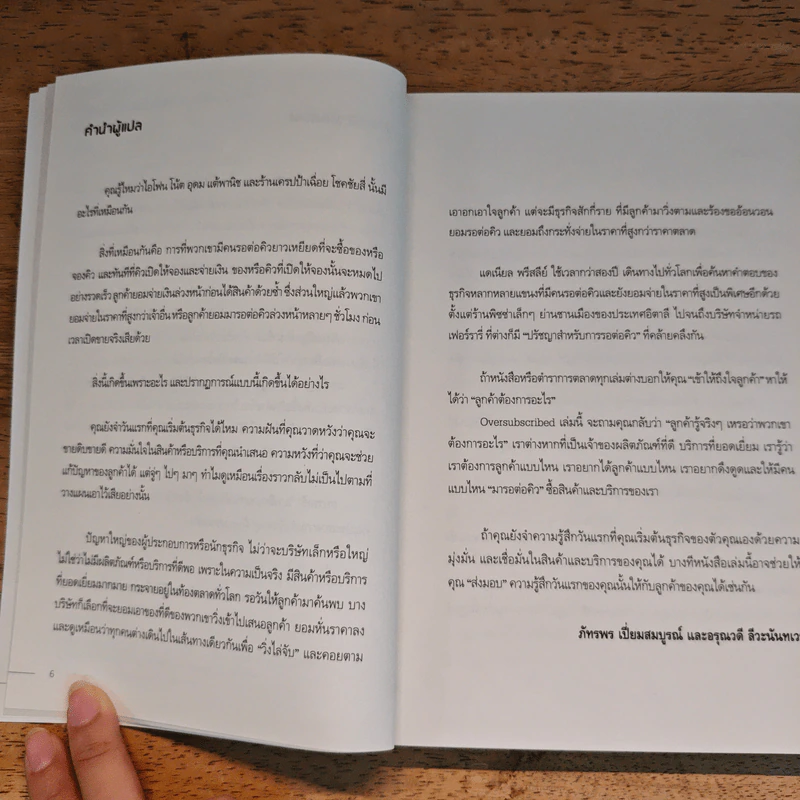 คำนำผู้แปล
คุณรู้ไหมว่าไอโฟน โน้ต อุดม แต้พานิช และร้านเครปป้าเฉื่อย โชคชัยสี่ นั้นมี
อะไรที่เหมือนกัน
สิ่งที่เหมือนกันคือ การที่พวกเขามีคนรอต่อคิวยาวเหยียดที่จะซื้อของหรือ
จองคิว และทันทีที่คิวเปิดให้จองและจ่ายเงิน ของหรือคิวที่เปิดให้จองนั้นจะหมดไป
อย่างรวดเร็ว ลูกค้ายอมจ่ายเงินล่วงหน้าก่อนได้สินค้าด้วยซ้ำ ซึ่งส่วนใหญ่แล้วพวกเขา
ยอมจ่ายในราคาที่สูงกว่าเจ้าอื่น หรือลูกค้ายอมมารอต่อคิวล่วงหน้าหลายๆ ชั่วโมง ก่อน
เวลาเปิดขายจริงเสียด้วย
สิ่งนี้เกิดขึ้นเพราะอะไร และปรากฏการณ์แบบนี้เกิดขึ้นได้อย่างไร
คุณยังจำวันแรกที่คุณเริ่มต้นธุรกิจได้ไหม ความฝันที่คุณวาดหวังว่าคุณจะ
ขายดิบขายดี ความมั่นใจในสินค้าหรือบริการที่คุณนำเสนอ ความหวังที่ว่าคุณจะช่วย
แก้ปัญหาของลูกค้าได้ แต่จู่ๆ ไปๆ มาๆ ทำไมดูเหมือนเรื่องราวกลับไม่เป็นไปตามที่
วางแผนเอาไว้เสียอย่างนั้น
ปัญหาใหญ่ของผู้ประกอบการหรือนักธุรกิจ ไม่ว่าจะบริษัทเล็กหรือใหญ่
ไม่ใช่ว่าไม่มีผลิตภัณฑ์หรือบริการที่ดีพอ เพราะในความเป็นจริง มีสินค้าหรือบริการ
ที่ยอดเยี่ยมมากมาย กระจายอยู่ในท้องตลาดทั่วโลก รอวันให้ลูกค้ามาค้นพบ บาง
บริษัทก็เลือกที่จะยอมเอาของที่ดีของพวกเขาวิ่งเข้าไปเสนอลูกค้า ยอมหั่นราคาลง
และดูเหมือนว่าทุกคนต่างเดินไปในเส้นทางเดียวกันเพื่อ “วิ่งไล่จับ” และคอยตาม
6
เอาอกเอาใจลูกค้า แต่จะมีธุรกิจสักกี่ราย ที่มีลูกค้ามาวิ่งตามและร้องขออ้อนวอน
ยอมรอต่อคิว และยอมถึงกระทั่งจ่ายในราคาที่สูงกว่าราคาตลาด
แดเนียล พรีสลีย์ ใช้เวลากว่าสองปี เดินทางไปทั่วโลกเพื่อค้นหาคำตอบของ
ธุรกิจหลากหลายแขนงที่มีคนรอต่อคิวและยังยอมจ่ายในราคาที่สูงเป็นพิเศษอีกด้วย
ตั้งแต่ร้านพิซซ่าเล็กๆ ย่านชานเมืองของประเทศอิตาลี ไปจนถึงบริษัทจำหน่ายรถ
เฟอร์รารี่ ที่ต่างก็มี “ปรัชญาสำหรับการรอต่อคิว” ที่คล้ายคลึงกัน
ถ้าหนังสือหรือตำราการตลาดทุกเล่มต่างบอกให้คุณ “เข้าให้ถึงใจลูกค้า” หาให้
ได้ว่า “ลูกค้าต้องการอะไร”
Oversubscribed เล่มนี้ จะถามคุณกลับว่า “ลูกค้ารู้จริงๆ เหรอว่าพวกเขา
ต้องการอะไร” เราต่างหากที่เป็นเจ้าของผลิตภัณฑ์ที่ดี บริการที่ยอดเยี่ยม เรารู้ว่า
เราต้องการลูกค้าแบบไหน เราอยากได้ลูกค้าแบบไหน เราอยากดึงดูดและให้มีคน
แบบไหน “มารอต่อคิว” ซื้อสินค้าและบริการของเรา
ถ้าคุณยังจำความรู้สึกวันแรกที่คุณเริ่มต้นธุรกิจของตัวคุณเองด้วยความ
มุ่งมั่น และเชื่อมั่นในสินค้าและบริการของคุณได้ บางทีหนังสือเล่มนี้อาจช่วยให้
คุณ “ส่งมอบ” ความรู้สึกวันแรกของคุณนั้นให้กับลูกค้าของคุณได้เช่นกัน
ภัทรพร เปี่ยมสมบูรณ์ และอรุณวดี ลีวะนันทเว